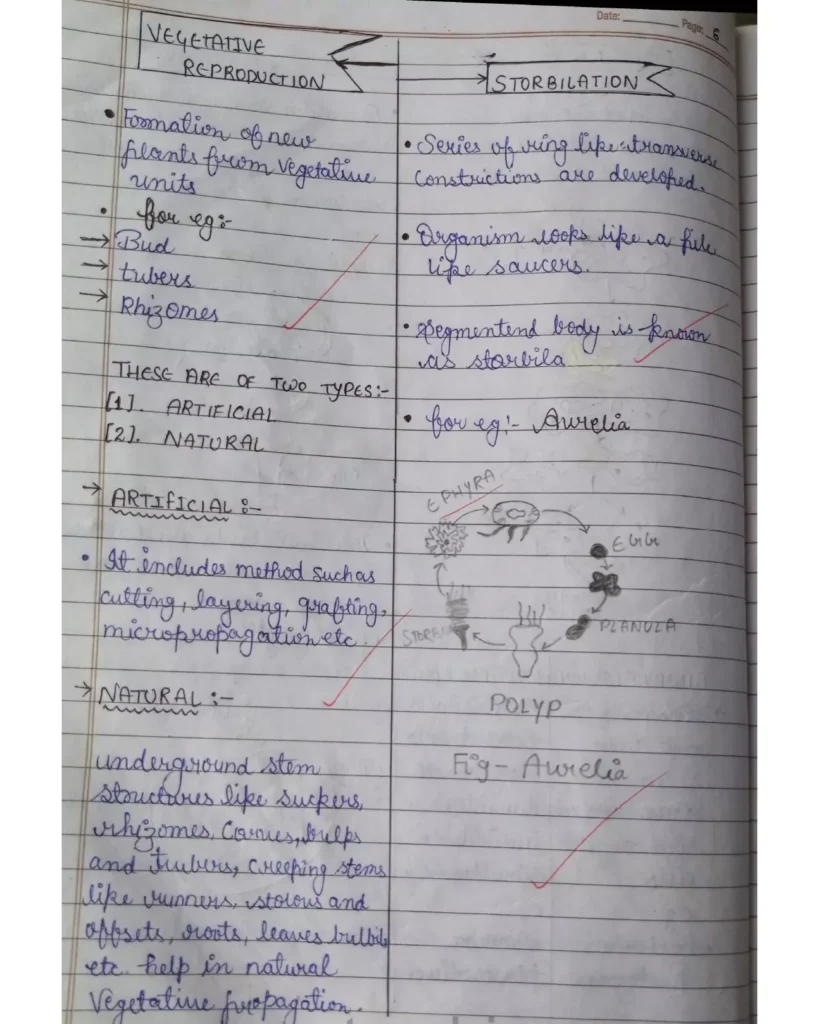 Date: Page: 6
VEGETATIVE
REPRODUCTION
• Formation of new
plants from vegetative
units
• for eg:-
→ Bud
→ tubers
→ Rhizomes
THESE ARE OF TWO TYPES:-
[1]. ARTIFICIAL
[2]. NATURAL
→ ARTIFICIAL :-
• It includes method such as
cutting, layering, grafting,
micropropagation etc
→ NATURAL :-
underground stem
structures like suckers,
rhizomes, Corms, bulps
and tubers, creeping stems
like runners, stolons and
offsets, roots, leaves bulbils
etc. help in natural
Vegetative propagation.
STORBILATION
• Series of ring like transverse
constrictions are developed.
• Organism looks like a pile
like saucers.
• Segmentend body is known
as storbila
• for eg:- Aurelia
EPHYRA
EGG
PLANULA
POLYP
Fig- Aurelia